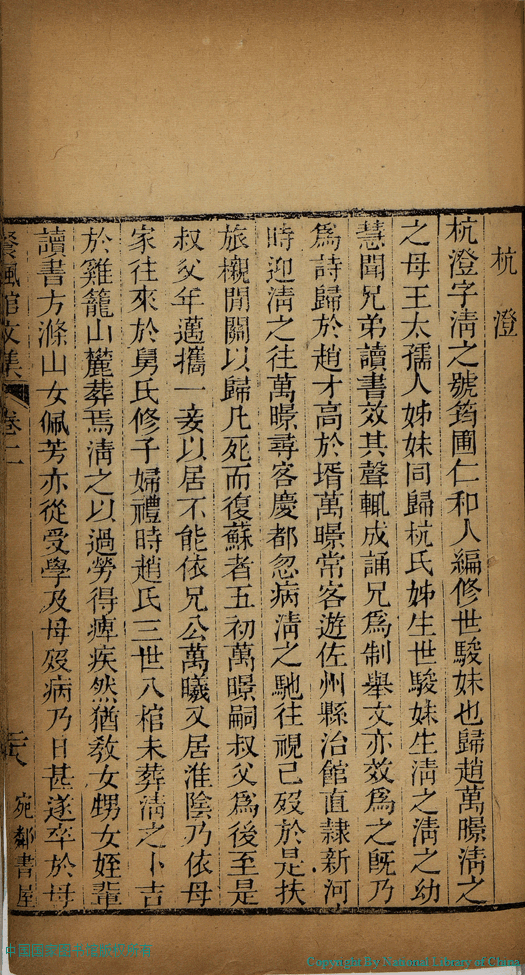 杭澄
杭澄字清之號筠圃仁和人編修世駿妹也歸趙萬暻清之
之母王太孺人姊妹同歸杭氏姊生世駿妹生清之清之幼
慧聞兄弟讀書效其聲輒成誦兄爲制舉文亦效爲之既乃
爲詩歸於趙才高於壻萬暻常客遊佐州縣治館直隸新河
時迎清之往萬暻尋客慶都忽病清之馳往視已歿於是扶
旅櫬閒關以歸凡死而復蘇者五初萬暻嗣叔父爲後至是
叔父年邁攜一妾以居不能依兄公萬曦又居淮陰乃依母
家往來於舅氏修子婦禮時趙氏三世八棺未葬清之卜吉
於雞籠山麓葬焉清之以過勞得痺疾然猶教女甥女姪輩
讀書方滌山女佩芳亦從受學及母歿病乃日甚遂卒於母
餐楓館文集 卷二
宛鄰書屋
Copyright By National Library of China